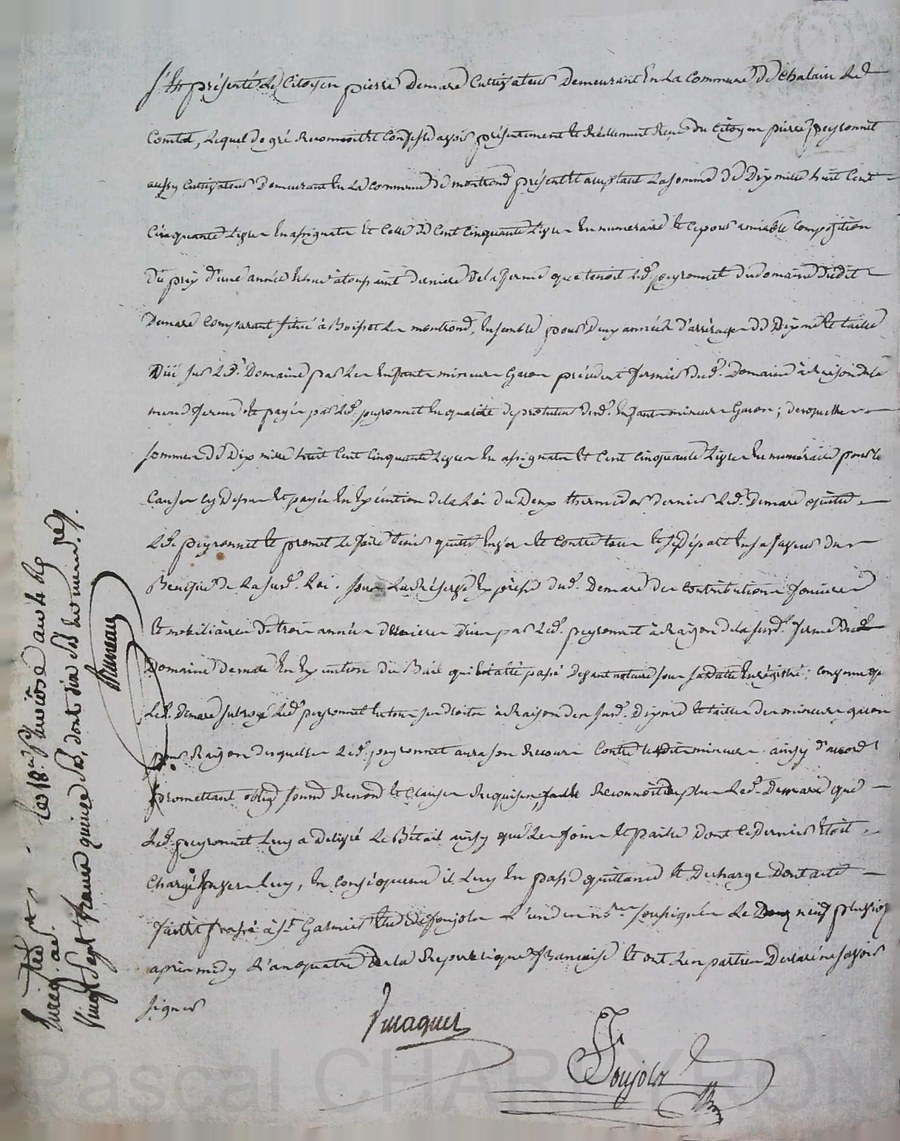 S'est présenté le Citoyen pierre Demare Cultivateur Demeurant En La Commune de Chalain Le
Comtal, Lequel de gré Reconnoit et Confesse avoir présentement et Réellement Reçu du Citoyen pierre peyronnet
aussy Cultivateur Demeurant En La Commune de montrond présent et acceptant La somme de Dix mille huit Cent
Cinquante Livres En assignats et Celle de Cent Cinquante Livres En numeraire et Ce pour amiable Composition
Du prix d'une année à toussaint derniere De La ferme que tenoit Led. peyronnet du domaine dudit
Demare Comparant situé à Boisset Les montrond, Ensemble pour deux années d'arrérages de Dixme et taille
sur Led. Domaine par Les Enfants mineurs précédent fermier dud. Domaine à Raison de la
même ferme et payée par Led. peyronnet En qualité de protuteur desd. Enfants mineurs ; desquelles
sommes de Dix mille huit Cent Cinquante Livres En assignats et Cent Cinquante Livres En numéraire pour les
Causes Cy Dessus et payée En Exécution de la Loi du Deux thermidor dernier Led. Demare quitte
Led. peyronnet et promet Le faire tenir quitte Envers et Contre tous et se départ En sa faveur du
Benefice de La susd. Loi. sous La Réserve Expresse dud. Demare des Contributions foncieres
et mobiliaires de trois années dernieres par Led. peyronnet à Raison de la susd. ferme dud.
Domaine Demare En Exécution du Bail qui Lui a été passé devant notaire sous sa datte Enrégistré ;
Led. Demare subroge Led. peyronnet En tous ses droits à Raison des susd. Dixme et tailles des mineurs
pour Raison desquelles Led. peyronnet aura son Recours Contre Lesdits mineurs ainsy d'accord
promettant oblig. soum. Renonc. et Clauses Requises Reconnoit de plus Led. Demare que
Led. peyronnet Luy a délivré Le Bétail ainsy que Les foins et pailles dont Ce dernier étoit
Chargé Envers Luy, En Conséquence il Luy En passe quittance et Décharge Dont acte
fait et passé à St. Galmier Etude de Soujolx L'un des nres. soussignés Le neuf pluviose
après midy L'an quatre de La Republique Francaise et ont Les parties Déclaré ne savoir
signer
Soujolx
Enreg. a St.
Le 18e. Pluviose an 4e. Rg
Vingt sept francs quinze s., dont dix s. en numer.